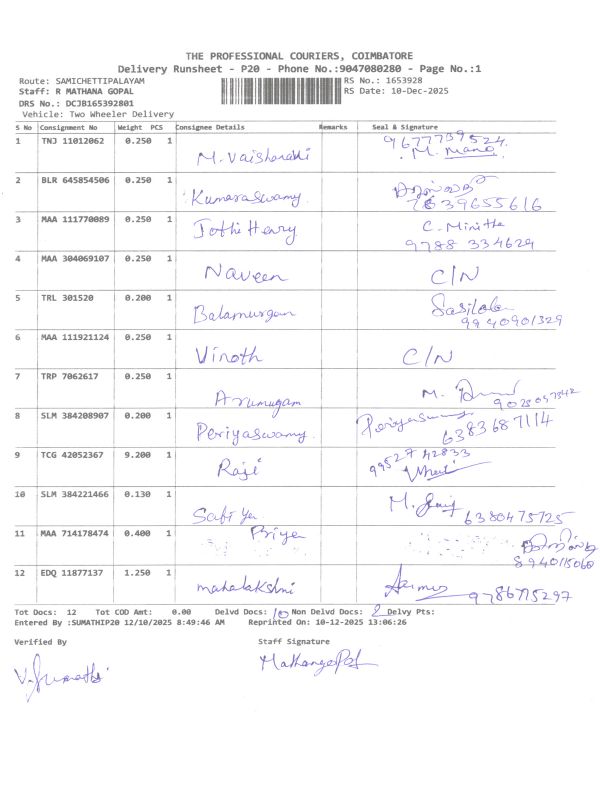 THE PROFESSIONAL COURIERS, COIMBATORE
Delivery Runsheet - P20 - Phone No.:9047080280 - Page No.:1
Route: SAMICHETTIPALAYAM RS No.: 1653928
Staff: R MATHANA GOPAL RS Date: 10-Dec-2025
DRS No.: DCJB165392801
Vehicle: Two Wheeler Delivery
S No Consignment No Weight PCS Consignee Details Remarks Seal & Signature
1 TNJ 11012062 0.250 1 M. Vaishanavi 9677739524
M. Mano
2 BLR 645854506 0.250 1 Kumaraswamy 7639655616
3 MAA 111770089 0.250 1 Jothi Henry C. Minitha
9788 334629
4 MAA 304069107 0.250 1 Naveen C/N
5 TRL 301520 0.200 1 Balamurgan Sasikala
9940901329
6 MAA 111921124 0.250 1 Vinoth C/N
7 TRP 7062617 0.250 1 Arumugam M.
8 SLM 384208907 0.200 1 Periyaswamy. Periyaswamy
6383687114
9 TCG 42052367 9.200 1 Raji 99527 42833
10 SLM 384221466 0.130 1 M.
6380475725
11 MAA 714178474 0.400 1 Priya
8940115060
12 EDQ 11877137 1.250 1 mahalakshmi 9786715297
Tot Docs: 12 Tot COD Amt: 0.00 Delvd Docs: 10 Non Delvd Docs: 2 Delvy Pts:
Entered By :SUMATHIP20 12/10/2025 8:49:46 AM Reprinted On: 10-12-2025 13:06:26
Verified By Staff Signature
V. Sumathi